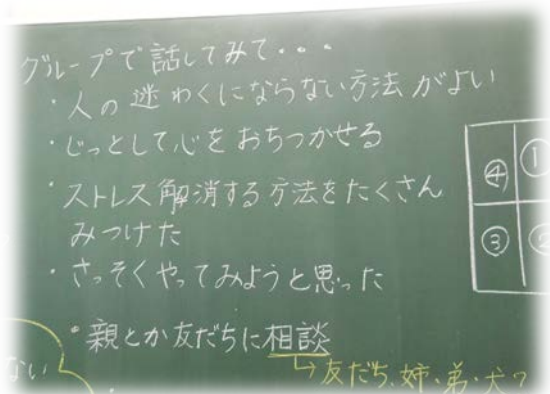 グループで話してみて・・・
・人の迷わくにならない方法がよい
・じっとして心をおちつかせる
・ストレス解消する方法をたくさん
みつけた
・さっそくやってみようと思った
・親とか友だちに相談
→友だち、姉・弟・犬?
ない
④ ①
③